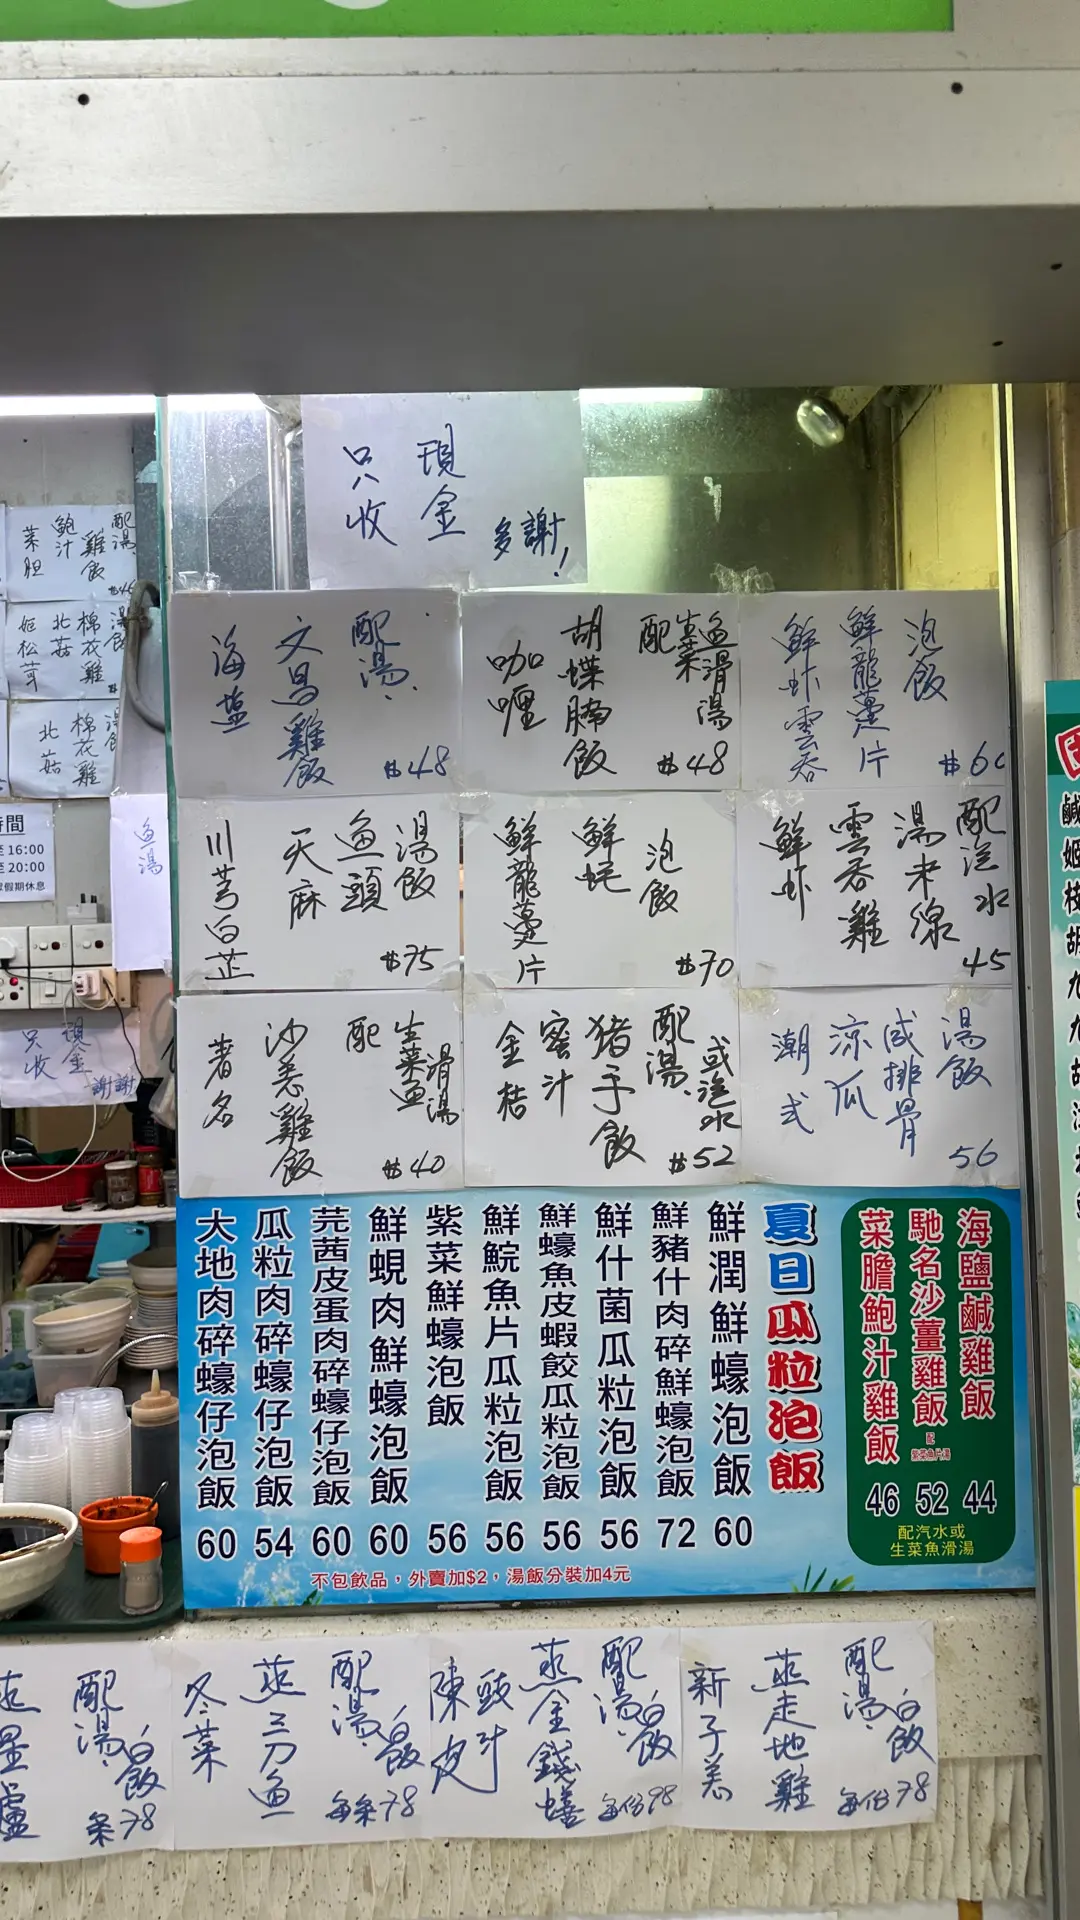 只收
現金
多謝!
菜胆
鮑汁
雞飯
配湯
$46
姬松茸
北菇
棉花雞
湯飯
北菇
棉花雞
湯飯
時間
至 16:00
至 20:00
眾假期休息
魚湯
只收
現金
謝謝
海盐
文昌雞飯
配湯
$48
咖喱
胡蝶腩飯
配生菜魚滑湯
$48
鮮虾雲吞
鮮龍躉片
泡飯
$60
川芎白芷
天麻
魚頭
湯飯
$75
鮮龍躉片
鮮蚝
泡飯
$70
鮮虾
雲吞雞
湯米線
配汽水
45
著名
沙姜雞飯
配生菜魚滑湯
$40
金桔
蜜汁
猪手飯
配湯或汽水
$52
潮式
涼瓜
咸排骨
湯飯
56
海鹽鹹雞飯
44
馳名沙薑雞飯
配
紫菜魚片湯
52
菜膽鮑汁雞飯
46
配汽水或
生菜魚滑湯
夏日瓜粒泡飯
鮮潤鮮蠔泡飯
60
鮮豬什肉碎鮮蠔泡飯
72
鮮什菌瓜粒泡飯
56
鮮蠔魚皮蝦餃瓜粒泡飯
56
鮮鯇魚片瓜粒泡飯
56
紫菜鮮蠔泡飯
56
鮮蜆肉鮮蠔泡飯
60
芫茜皮蛋肉碎蠔仔泡飯
60
瓜粒肉碎蠔仔泡飯
54
大地肉碎蠔仔泡飯
60
不包飲品，外賣加$2，湯飯分裝加4元
配湯白飯
条78
冬菜
蒸三刀魚
配湯白飯
每条78
陳皮
豉汁
蒸金錢鱔
配湯白飯
每份98
新子羌
蒸走地雞
配湯白飯
每份78